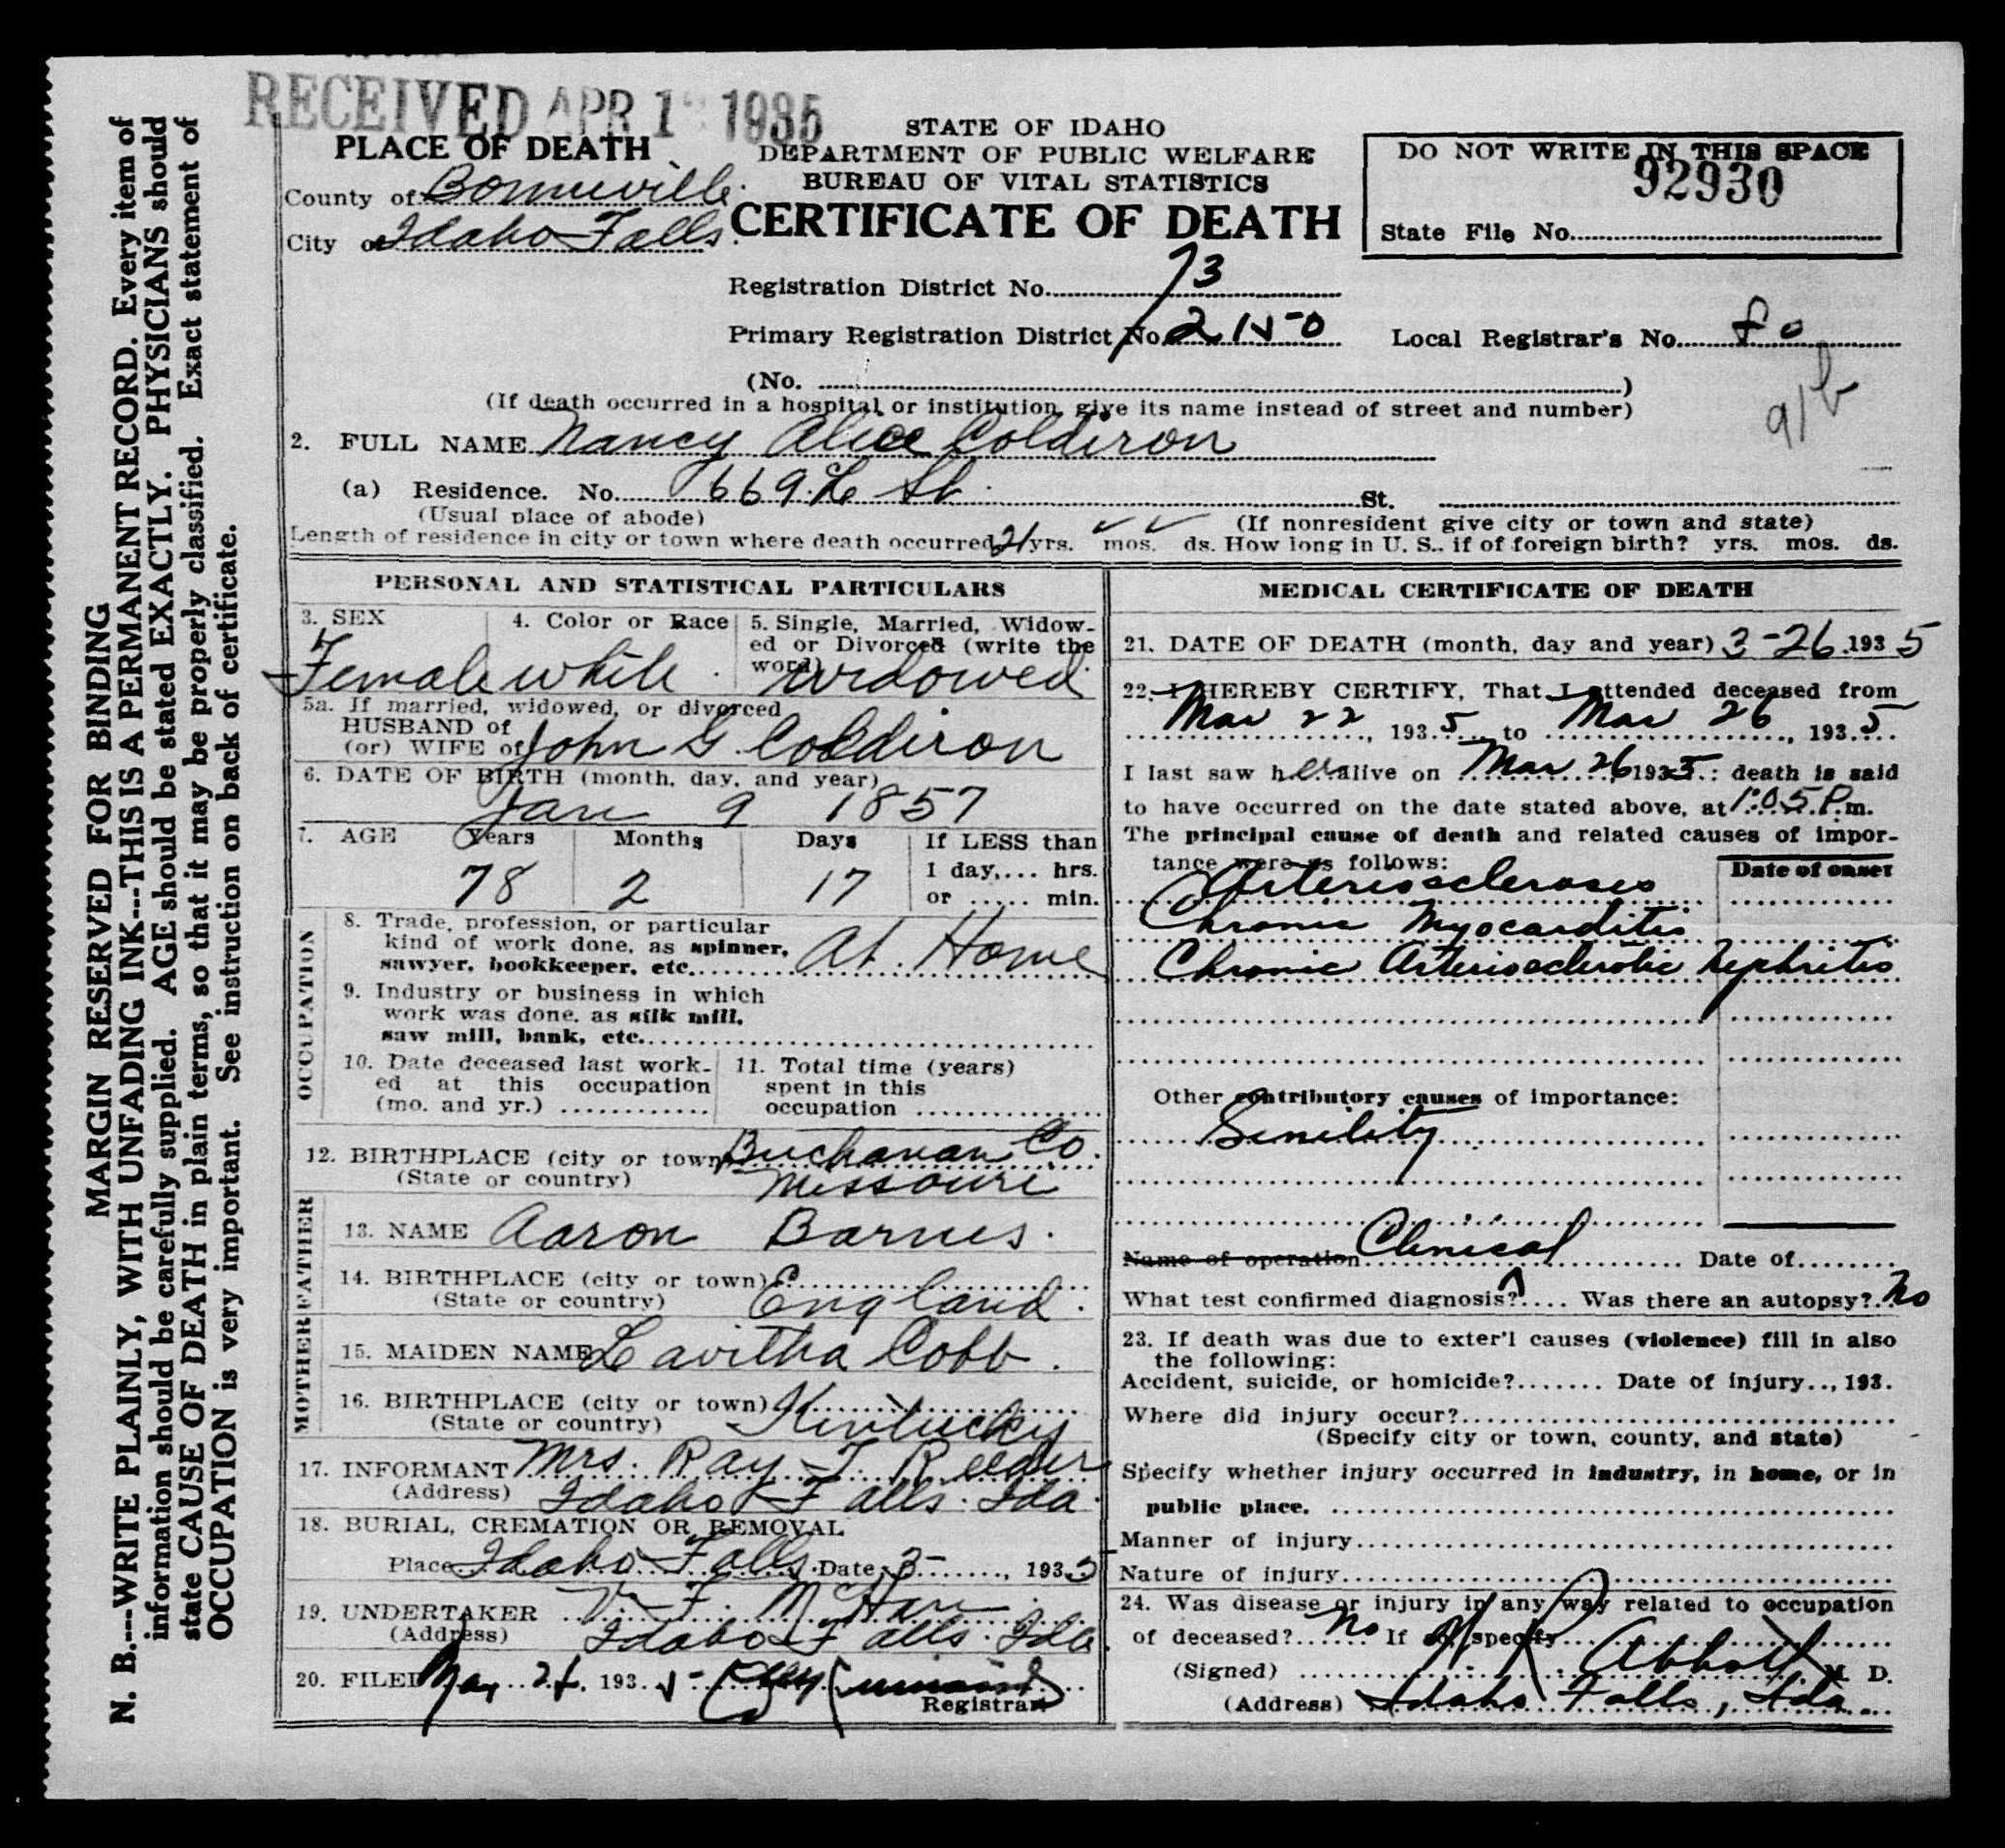 RECEIVED APR 1 1935
STATE OF IDAHO
DEPARTMENT OF PUBLIC WELFARE
BUREAU OF VITAL STATISTICS
CERTIFICATE OF DEATH
PLACE OF DEATH
County of Bonneville
City of Idaho Falls
DO NOT WRITE IN THIS SPACE
92930
State File No.
Registration District No. 73
Primary Registration District No. 2150 Local Registrar's No. 80
91b
(No. )
(If death occurred in a hospital or institution, give its name instead of street and number)
2. FULL NAME Nancy Alice Colderon
(a) Residence. No. 669 L St. St.
(Usual place of abode) (If nonresident give city or town and state)
Length of residence in city or town where death occurred 21 yrs. mos. ds. How long in U. S., if of foreign birth? yrs. mos. ds.
PERSONAL AND STATISTICAL PARTICULARS
3. SEX 4. Color or Race 5. Single, Married, Widow-
ed or Divorced (write the
word)
Female white widowed
5a. If married, widowed, or divorced
HUSBAND of
(or) WIFE of John G Colderon
6. DATE OF BIRTH (month, day, and year)
Jan 9 1857
7. AGE Years Months Days If LESS than
1 day,... hrs.
78 2 17 or ..... min.
OCCUPATION
8. Trade, profession, or particular
kind of work done, as spinner,
sawyer, bookkeeper, etc. At Home
9. Industry or business in which
work was done, as silk mill,
saw mill, bank, etc.
10. Date deceased last work- 11. Total time (years)
ed at this occupation spent in this
(mo. and yr.) occupation
12. BIRTHPLACE (city or town) Buchanan Co.
(State or country) Missouri
FATHER
13. NAME Aaron Barnes.
14. BIRTHPLACE (city or town)
(State or country) England.
MOTHER
15. MAIDEN NAME Lavitha Cobb.
16. BIRTHPLACE (city or town)
(State or country) Kentucky
17. INFORMANT Mrs. Ray T. Reeder
(Address) Idaho Falls. Ida.
18. BURIAL, CREMATION OR REMOVAL
Place Idaho Falls Date 3- , 1935
19. UNDERTAKER V. F. McHan
(Address) Idaho Falls. Ida.
20. FILED , 193
Registrar
MEDICAL CERTIFICATE OF DEATH
21. DATE OF DEATH (month, day and year) 3-26 1935
22. I HEREBY CERTIFY, That I attended deceased from
Mar 22, 1935 to Mar 26, 1935
I last saw her alive on Mar 26 1935: death is said
to have occurred on the date stated above, at 1:05 P.m.
The principal cause of death and related causes of impor-
tance were as follows: Date of onset
Arteriosclerosis
Chronic Myocarditis
Chronic Arteriosclerotic Nephritis
Other contributory causes of importance:
Senility
Name of operation Clinical Date of
What test confirmed diagnosis? Was there an autopsy? No
23. If death was due to exter'l causes (violence) fill in also
the following:
Accident, suicide, or homicide? Date of injury.., 193.
Where did injury occur?
(Specify city or town, county, and state)
Specify whether injury occurred in industry, in home, or in
public place.
Manner of injury
Nature of injury
24. Was disease or injury in any way related to occupation
of deceased? No If so, specify
(Signed) Abbott M. D.
(Address) Idaho Falls, Ida.
MARGIN RESERVED FOR BINDING
N. B.---WRITE PLAINLY, WITH UNFADING INK---THIS IS A PERMANENT RECORD. Every item of
information should be carefully supplied. AGE should be stated EXACTLY. PHYSICIANS should
state CAUSE OF DEATH in plain terms, so that it may be properly classified. Exact statement of
OCCUPATION is very important. See instruction on back of certificate.